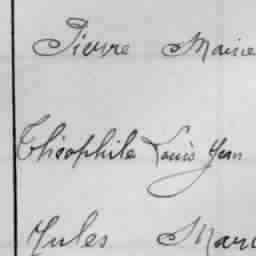 Pierre Marie
Théophile Louis Jean
Jules Mari